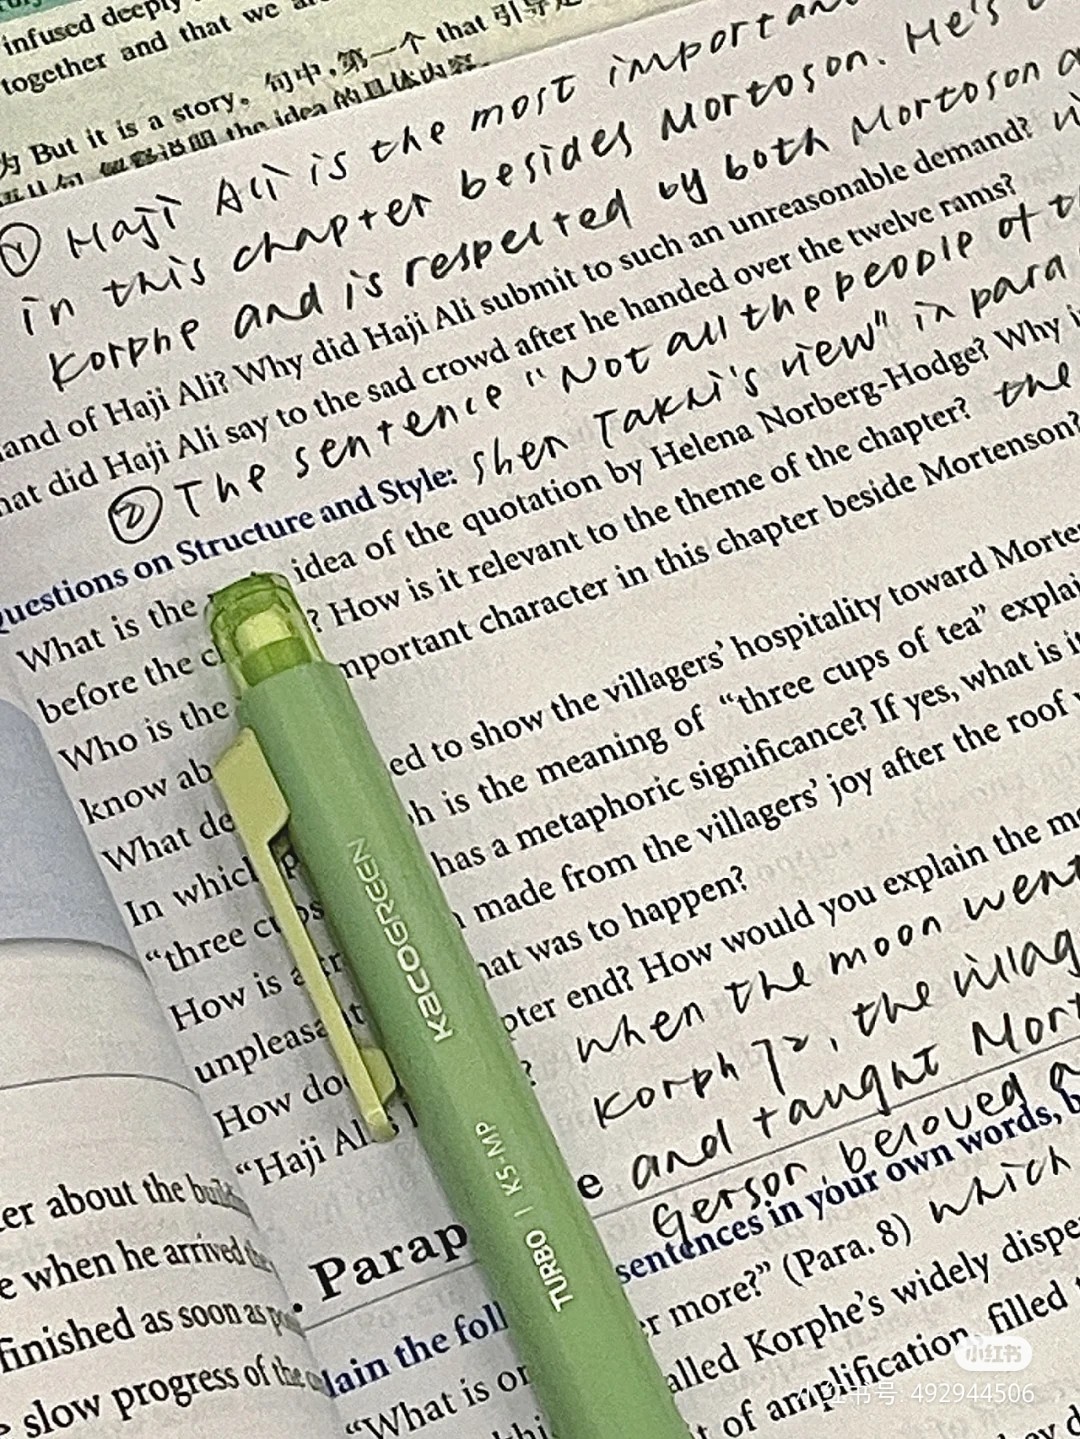 infused deeply
together and that we
But it is a story。句中,第一个 that 引导
the idea 的具体内容。
① Haji Ali is the most important
in this chapter besides Mortoson. He's
Korphe and is respected by both Mortoson
and of Haji Ali? Why did Haji Ali submit to such an unreasonable demand?
hat did Haji Ali say to the sad crowd after he handed over the twelve rams?
② The sentence "Not all the people of
Questions on Structure and Style: Sher Takhi's view" in para
What is the idea of the quotation by Helena Norberg-Hodge? Why i
before the c ? How is it relevant to the theme of the chapter? the
Who is the mportant character in this chapter beside Mortenson?
know ab
What de ed to show the villagers' hospitality toward Morte
In which h is the meaning of "three cups of tea" explai
"three cups has a metaphoric significance? If yes, what is it
How is a made from the villagers' joy after the roof
unpleasant hat was to happen?
How do pter end? How would you explain the
"Haji Al ? when the moon went
Korph, the villag
and taught Mort
Gerson beloved
which
KACOGREEN
TURBO | K5-MP
er about the
e when he arrived
finished as soon as
slow progress of the
Parap e
lain the foll sentences in your own words,
"What is or er more?" (Para. 8)
alled Korphe's widely dispe
of amplification, filled
小红书
小红书号: 492944506